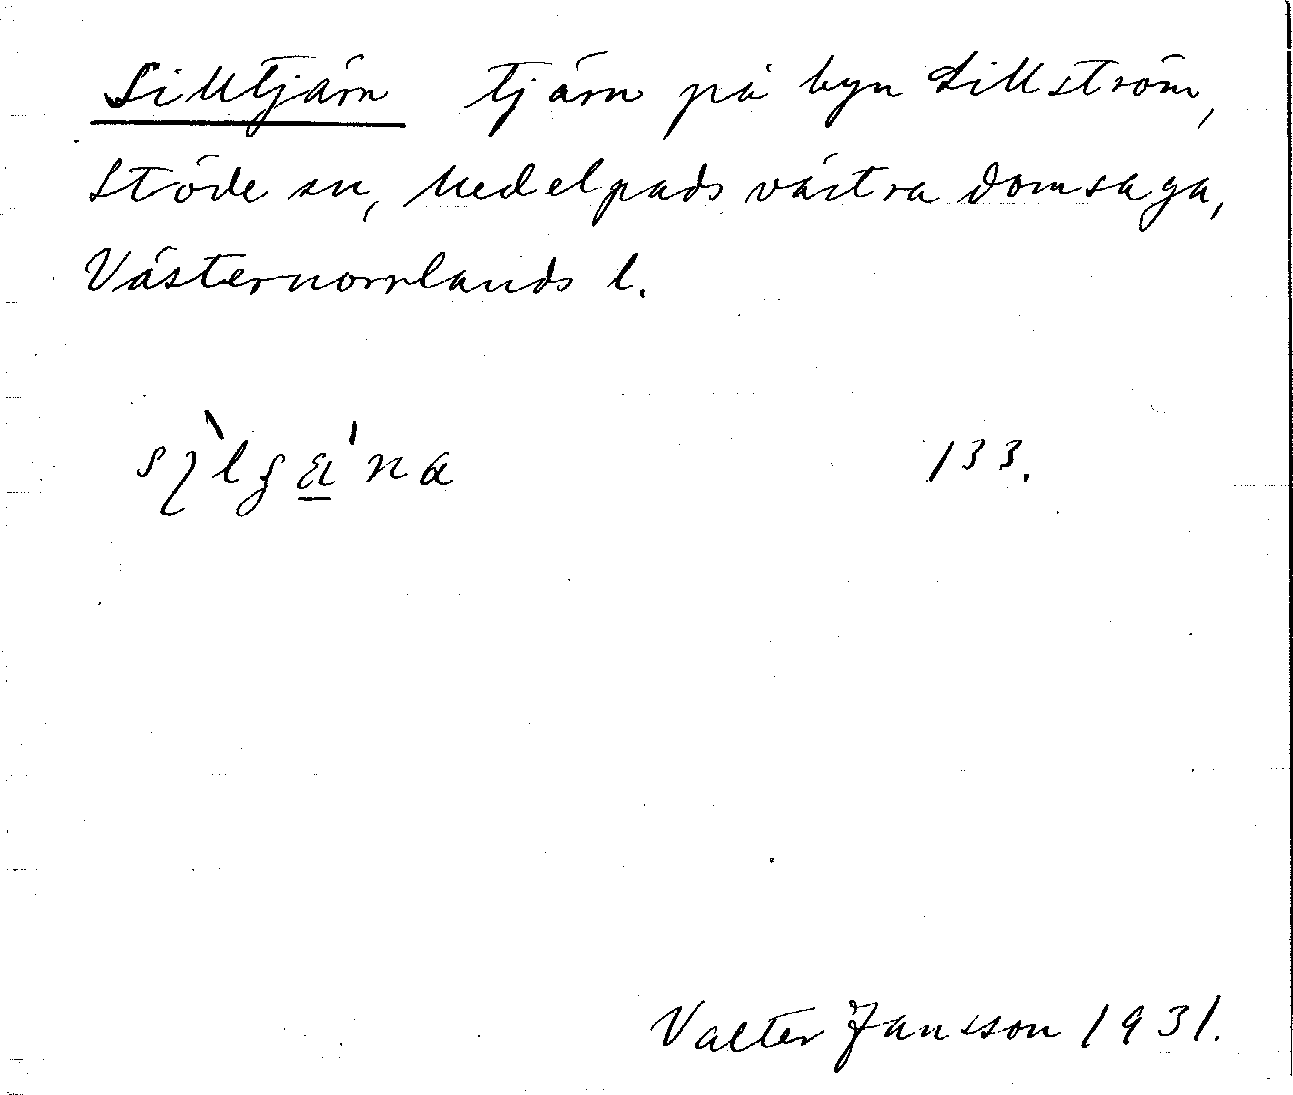 Silltjärn tjärn på byn Sillström,
Stöde sn, Medelpads västra domsaga,
Västernorrlands l.
133.
Valter Jansson 1931.